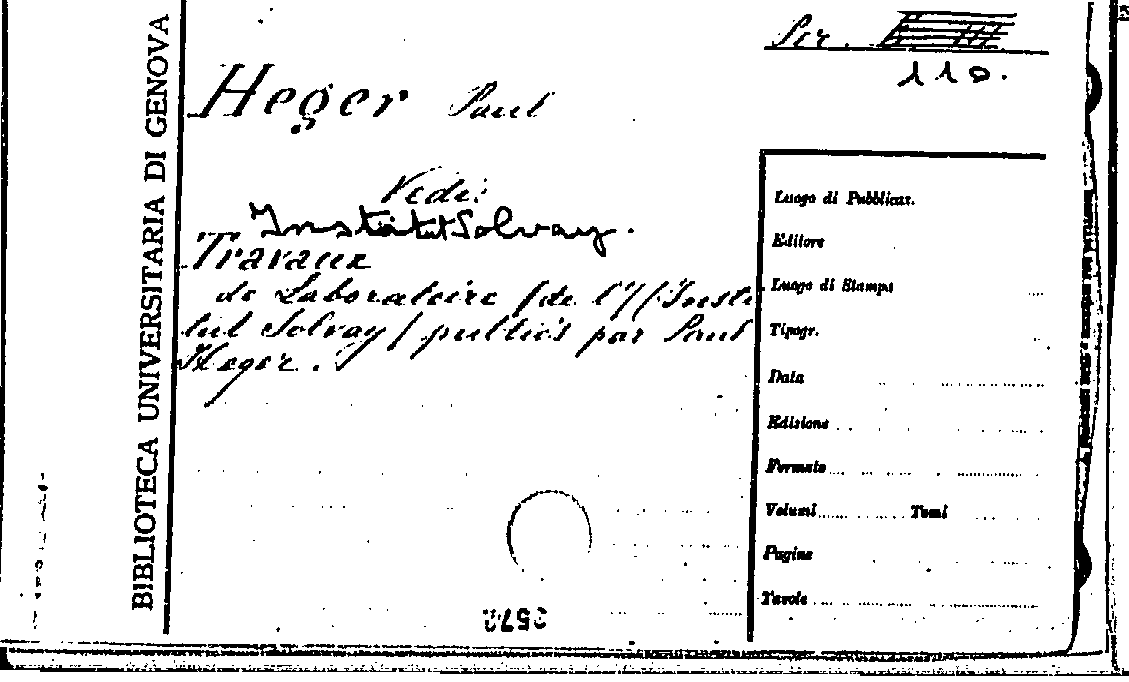 BIBLIOTECA UNIVERSITARIA DI GENOVA
Per.
110.
Heger Paul
Vedi:
Institut Solvay.
Travaux
de Laboratoire (de l')(Insti
tut Solvay) publiés par Paul
Heger.
Luogo di Pubblicaz.
Editore
Luogo di Stampa
Tipogr.
Data
Edizione
Formato
Volumi Tomi
Pagine
Tavole